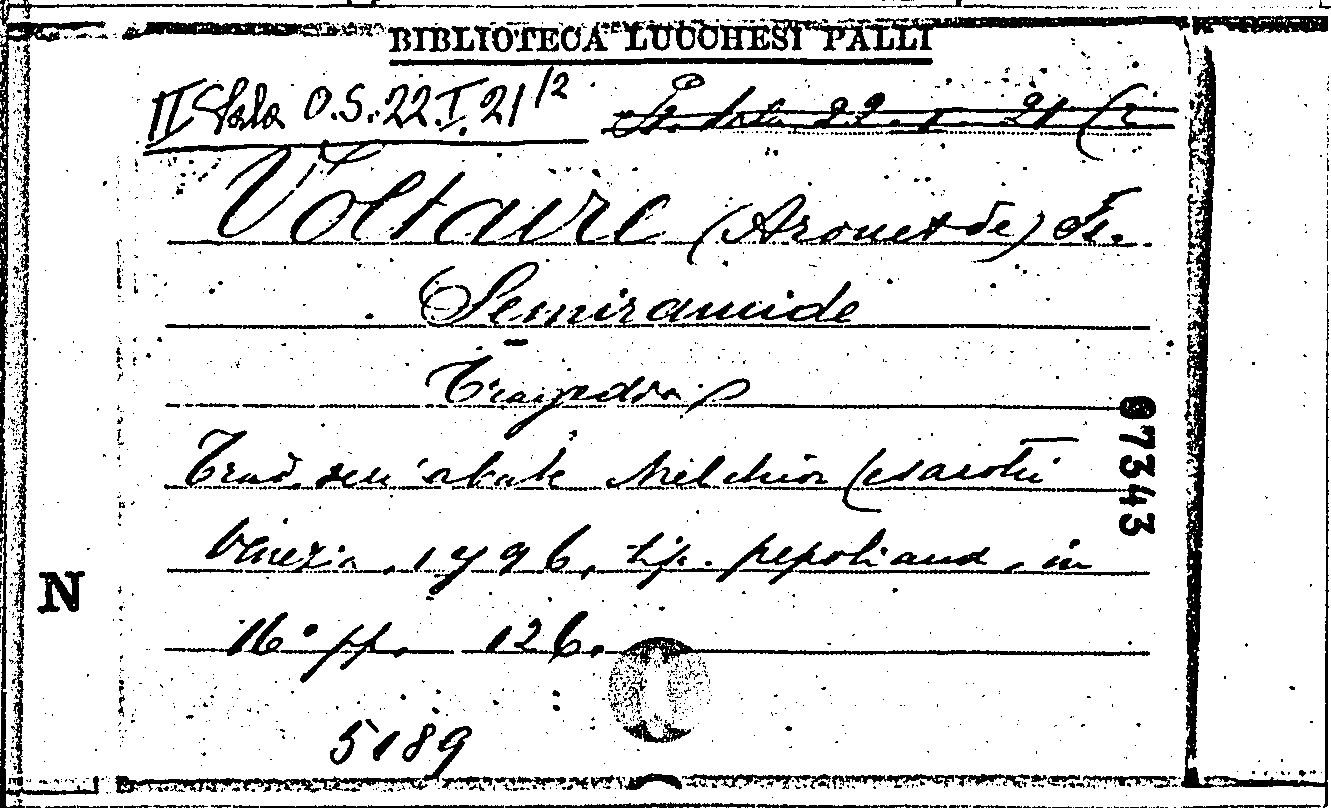 BIBLIOTECA LUCCHESI PALLI
II Sala O.S. 22.I.21/2
Voltaire (Arouet de) Fr.
Semiramide
Tragedia
Trad. dell'abate Melchior Cesarotti
Venezia, 1796, tip. pepoliana, in
16° pp. 126.
5189
N
07343